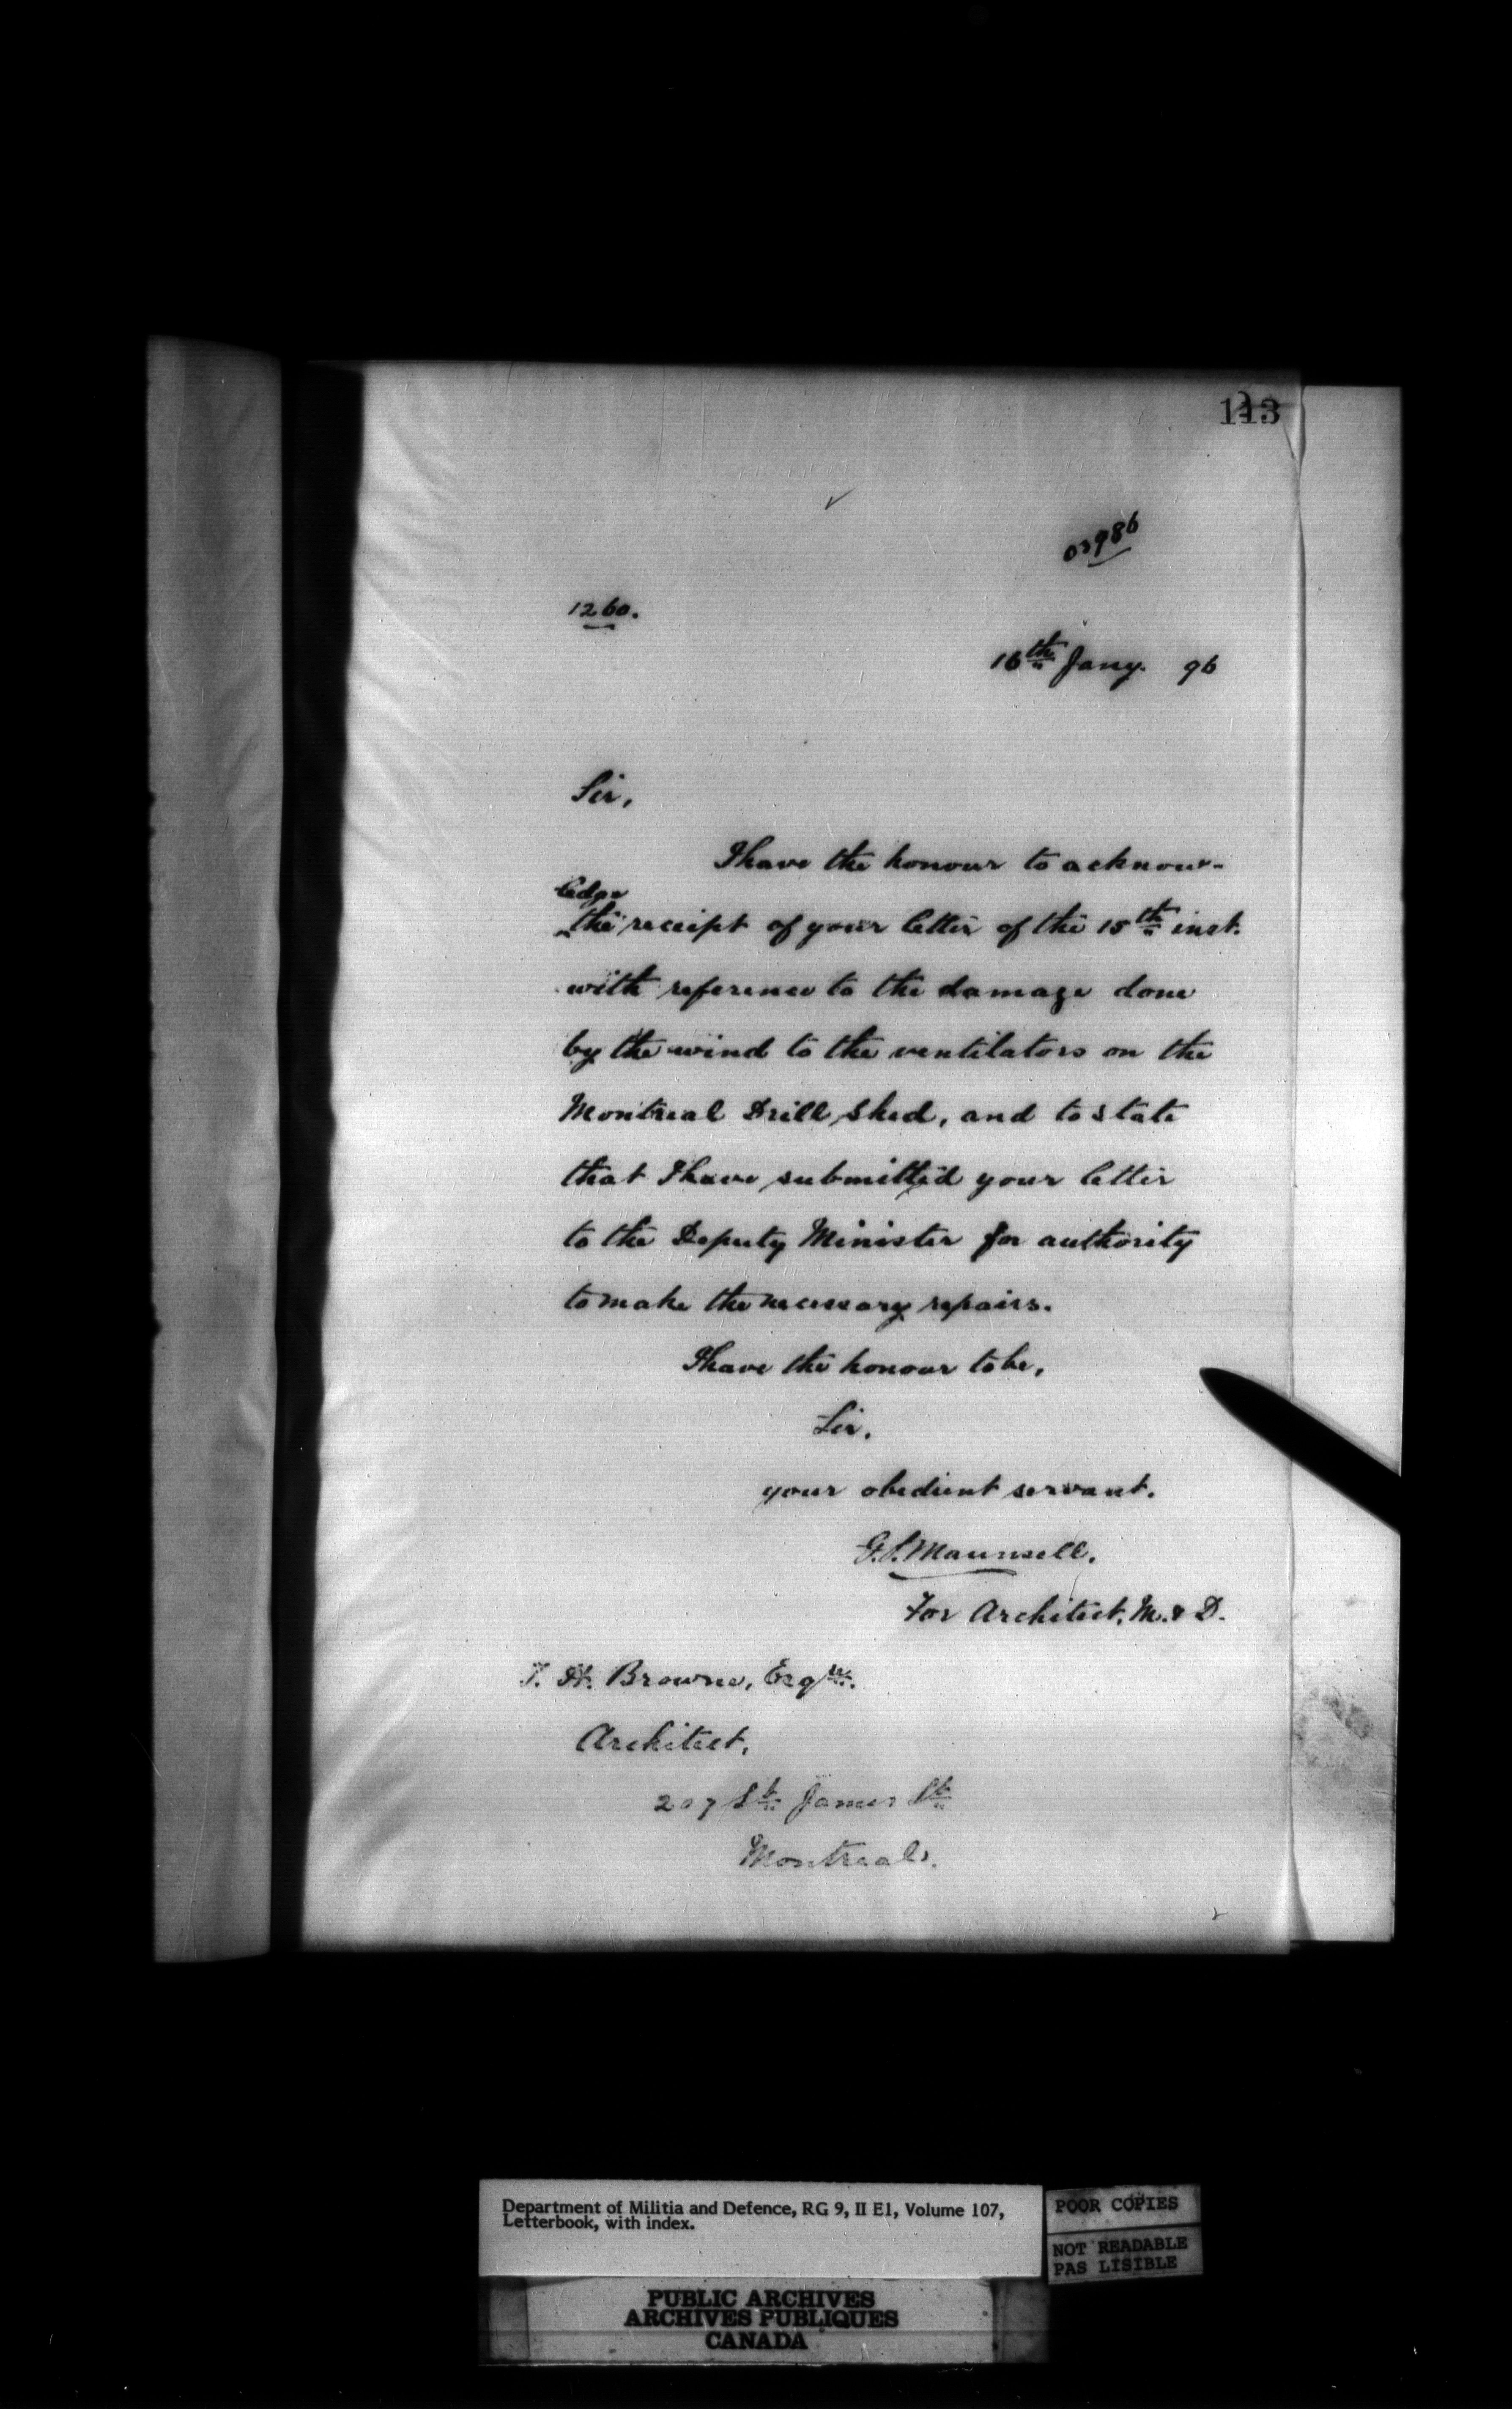 113
03986
1260.
16th Jany. 96
Sir,
I have the honour to acknow-
ledge
the receipt of your letter of the 15th inst.
with reference to the damage done
by the wind to the ventilators on the
Montreal Drill Shed, and to state
that I have submitted your letter
to the Deputy Minister for authority
to make the necessary repairs.
I have the honour to be,
Sir,
your obedient servant.
G.S. Maunsell.
For Architect, M. & D.
T. H. Browne, Esqre.
Architect,
207 St. James St.
Montreal.
Department of Militia and Defence, RG 9, II E1, Volume 107,
Letterbook, with index.
POOR COPIES
NOT READABLE
PAS LISIBLE
PUBLIC ARCHIVES
ARCHIVES PUBLIQUES
CANADA